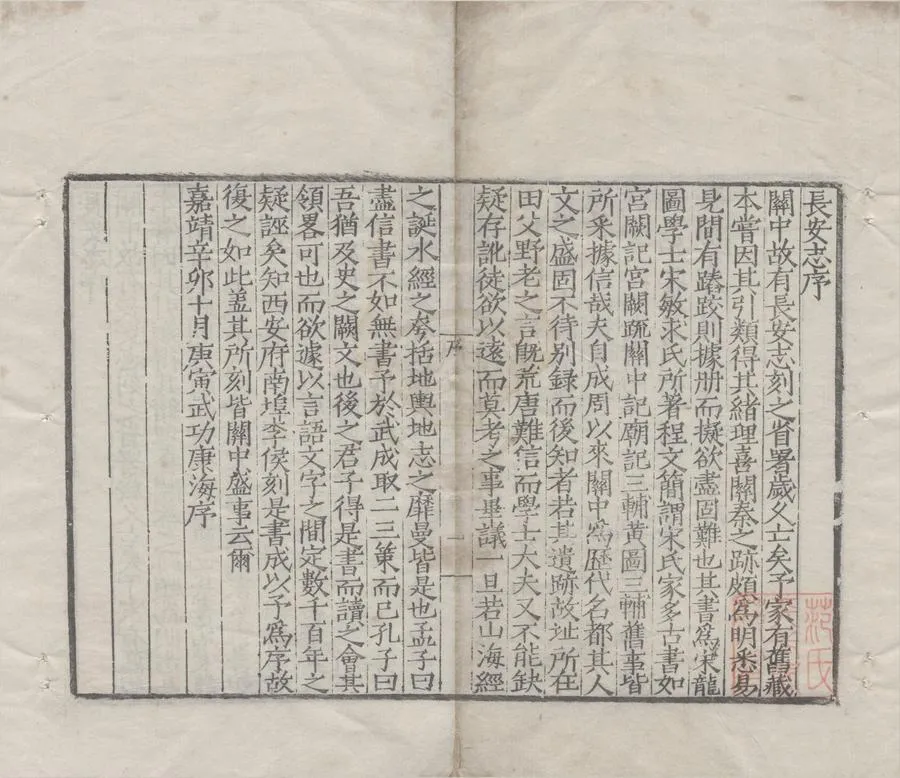 長安志序
關中故有長安志刻之省署歲久亡矣予家有舊藏
本嘗因其引類得其緒理喜關秦之跡頗爲明悉易
見間有踳駮則據册而擬欲盡固難也其書爲宋龍
圖學士宋敏求氏所著程文簡謂宋氏家多古書如
宮闕記宮闕疏關中記廟記三輔黃圖三輔舊事皆
所釆據信哉夫自成周以來關中爲歷代名都其人
文之盛固不待别録而後知者若其遺跡故址所在
田父野老之言旣荒唐難信而學士大夫又不能缺
疑存訛徒欲以遠而莫考之事畢議一旦若山海經
序
一
之誕水經之參括地輿地志之靡曼皆是也孟子曰
盡信書不如無書予於武成取二三策而已孔子曰
吾猶及史之闕文也後之君子得是書而讀之會其
領畧可也而欲據以言語文字之間定數千百年之
疑誣矣知西安府南埠李侯刻是書成以予爲序故
復之如此盖其所刻皆關中盛事云爾
嘉靖辛卯十月庚寅武功康海序
范氏